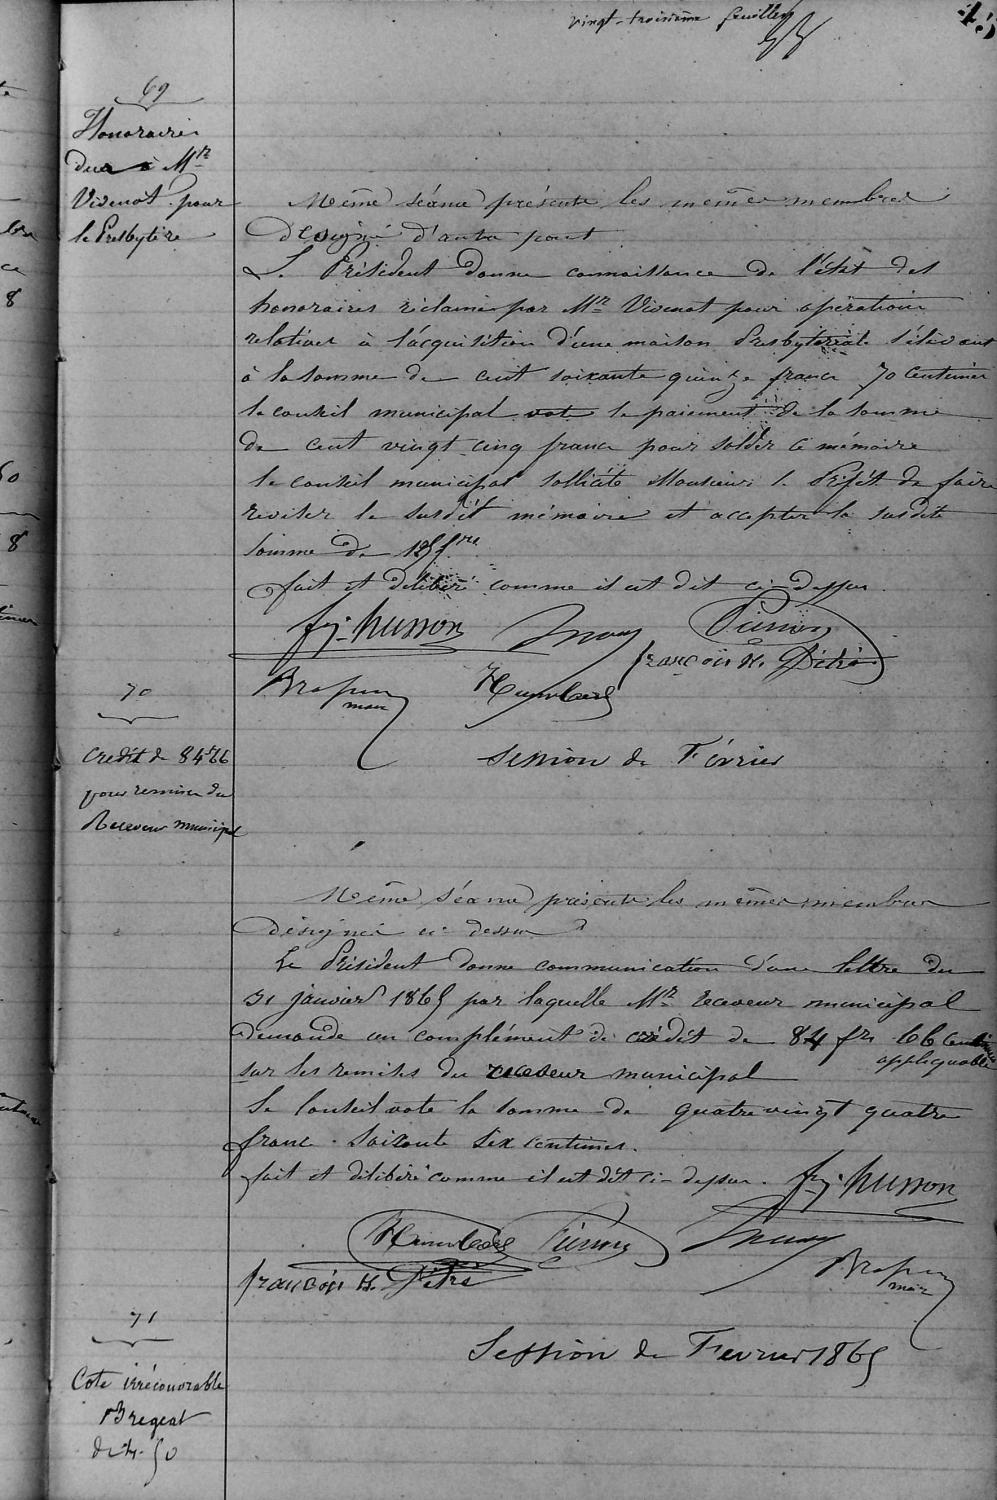 vingt-troisième feuillet
45
69
Honoraires
dus à Mr
Vivenot pour
le Presbytère
Même séance présents les mêmes membres
désignés d'autre part
Le Président donne connaissance de l'état des
honoraires réclamés par Mr Vivenot pour opérations
relatives à l'acquisition d'une maison Presbytérale s'élevant
à la somme de cent soixante quinze francs 70 centimes
le conseil municipal vote le paiement de la somme
de cent vingt cinq francs pour solder ce mémoire
le conseil municipal sollicite Monsieur le Préfet de faire
reviser le susdit mémoire et accepter la susdite
somme de 125 frs
fait et délibéré comme il est dit ci-dessus
fçs husson
Pierson
françois N.
Humbert
maire
70
Crédit de 84f 66
pour remises du
Receveur municipal
Session de Février
Même séance présents les mêmes membres
désignés ci dessus
Le Président donne communication d'une lettre du
31 janvier 1865 par laquelle Mr Receveur municipal
demande un complément de crédit de 84 frs 66 centimes
applicquable
sur les remises du receveur municipal
Le Conseil vote la somme de quatre vingt quatre
francs soixante six centimes.
fait et délibéré comme il est dit ci-dessus. fçs husson
Humbert Pierson
françois N.
maire
71
Session de Fevrier 1865
Cote irrécouvrable
Bregeat
de 4.50